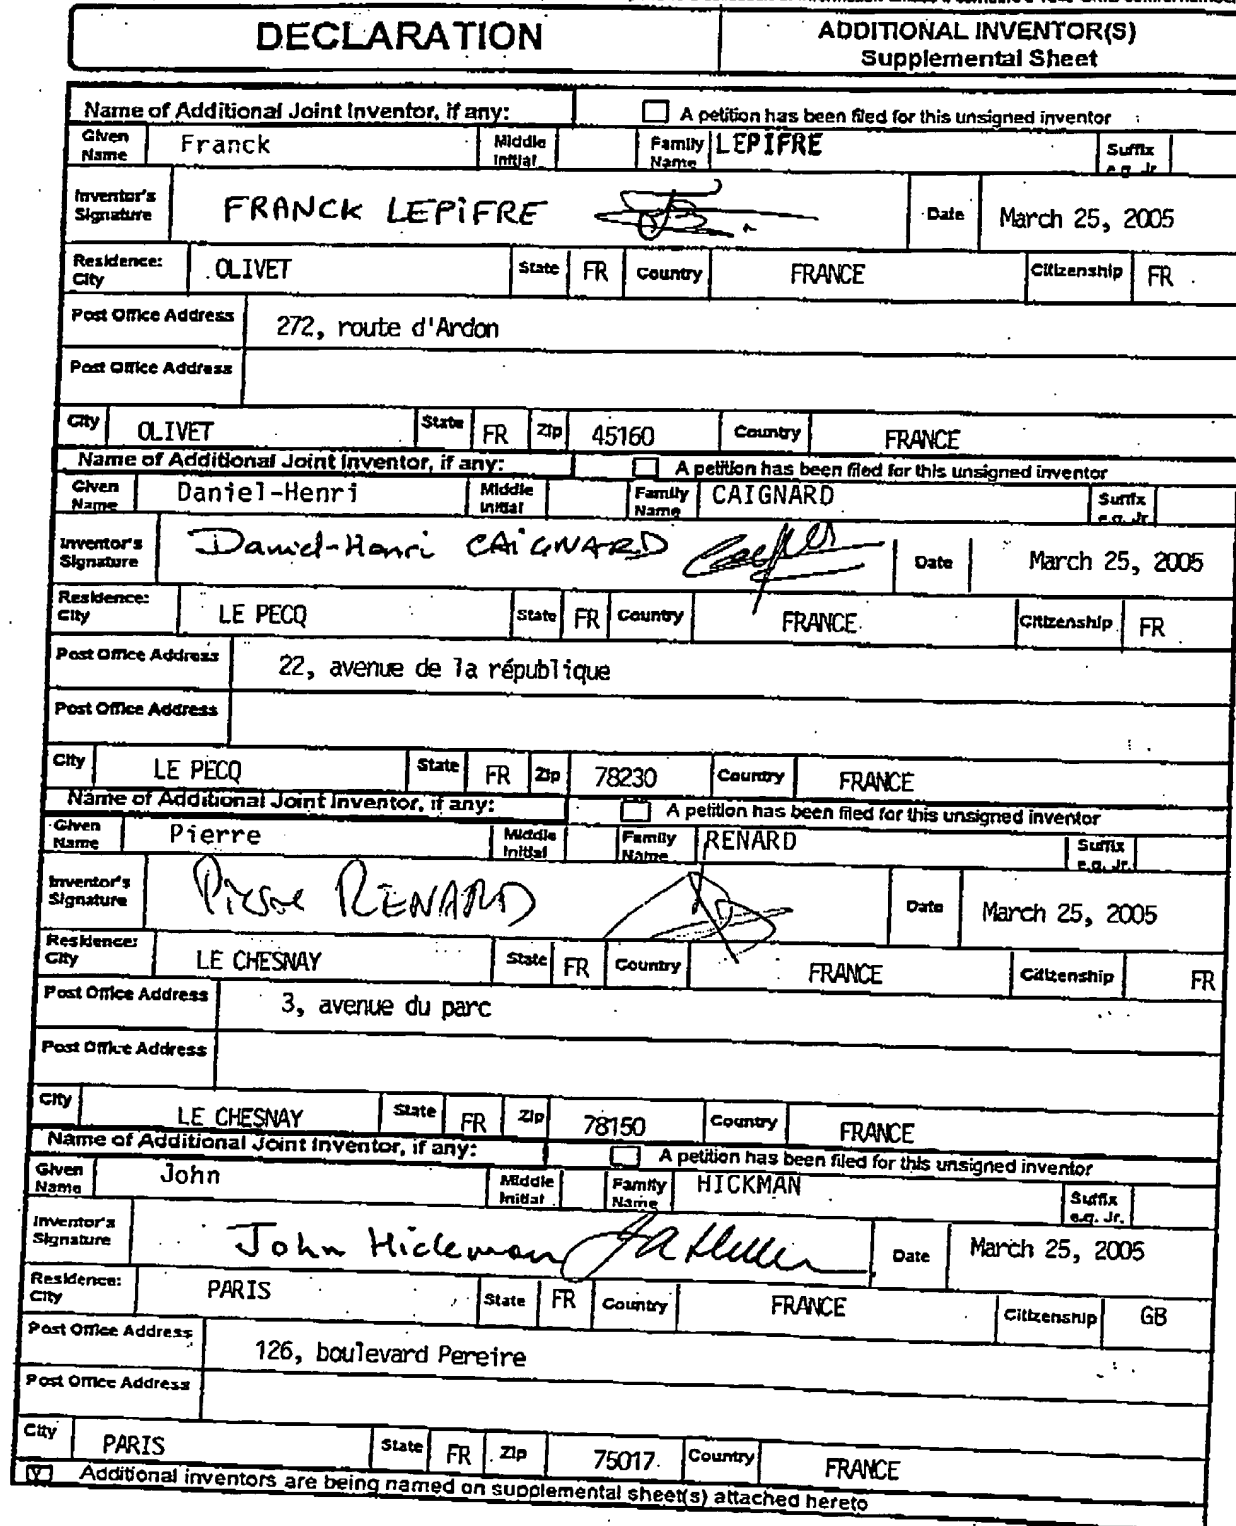 DECLARATION
ADDITIONAL INVENTOR(S)
Supplemental Sheet
Name of Additional Joint Inventor, if any: A petition has been filed for this unsigned inventor
Given Name Franck Middle Initial Family Name LEPIFRE Suffix e.g. Jr
Inventor's Signature FRANCK LEPIFRE Date March 25, 2005
Residence: City OLIVET State FR Country FRANCE Citizenship FR
Post Office Address 272, route d'Ardon
Post Office Address
City OLIVET State FR Zip 45160 Country FRANCE
Name of Additional Joint Inventor, if any: A petition has been filed for this unsigned inventor
Given Name Daniel-Henri Middle Initial Family Name CAIGNARD Suffix e.g. Jr
Inventor's Signature Daniel-Henri CAIGNARD Date March 25, 2005
Residence: City LE PECQ State FR Country FRANCE Citizenship FR
Post Office Address 22, avenue de la république
Post Office Address
City LE PECQ State FR Zip 78230 Country FRANCE
Name of Additional Joint Inventor, if any: A petition has been filed for this unsigned inventor
Given Name Pierre Middle Initial Family Name RENARD Suffix e.g. Jr.
Inventor's Signature Pierre RENARD Date March 25, 2005
Residence: City LE CHESNAY State FR Country FRANCE Citizenship FR
Post Office Address 3, avenue du parc
Post Office Address
City LE CHESNAY State FR Zip 78150 Country FRANCE
Name of Additional Joint Inventor, if any: A petition has been filed for this unsigned inventor
Given Name John Middle Initial Family Name HICKMAN Suffix e.g. Jr.
Inventor's Signature John Hickman Date March 25, 2005
Residence: City PARIS State FR Country FRANCE Citizenship GB
Post Office Address 126, boulevard Pereire
Post Office Address
City PARIS State FR Zip 75017 Country FRANCE
Additional inventors are being named on supplemental sheet(s) attached hereto